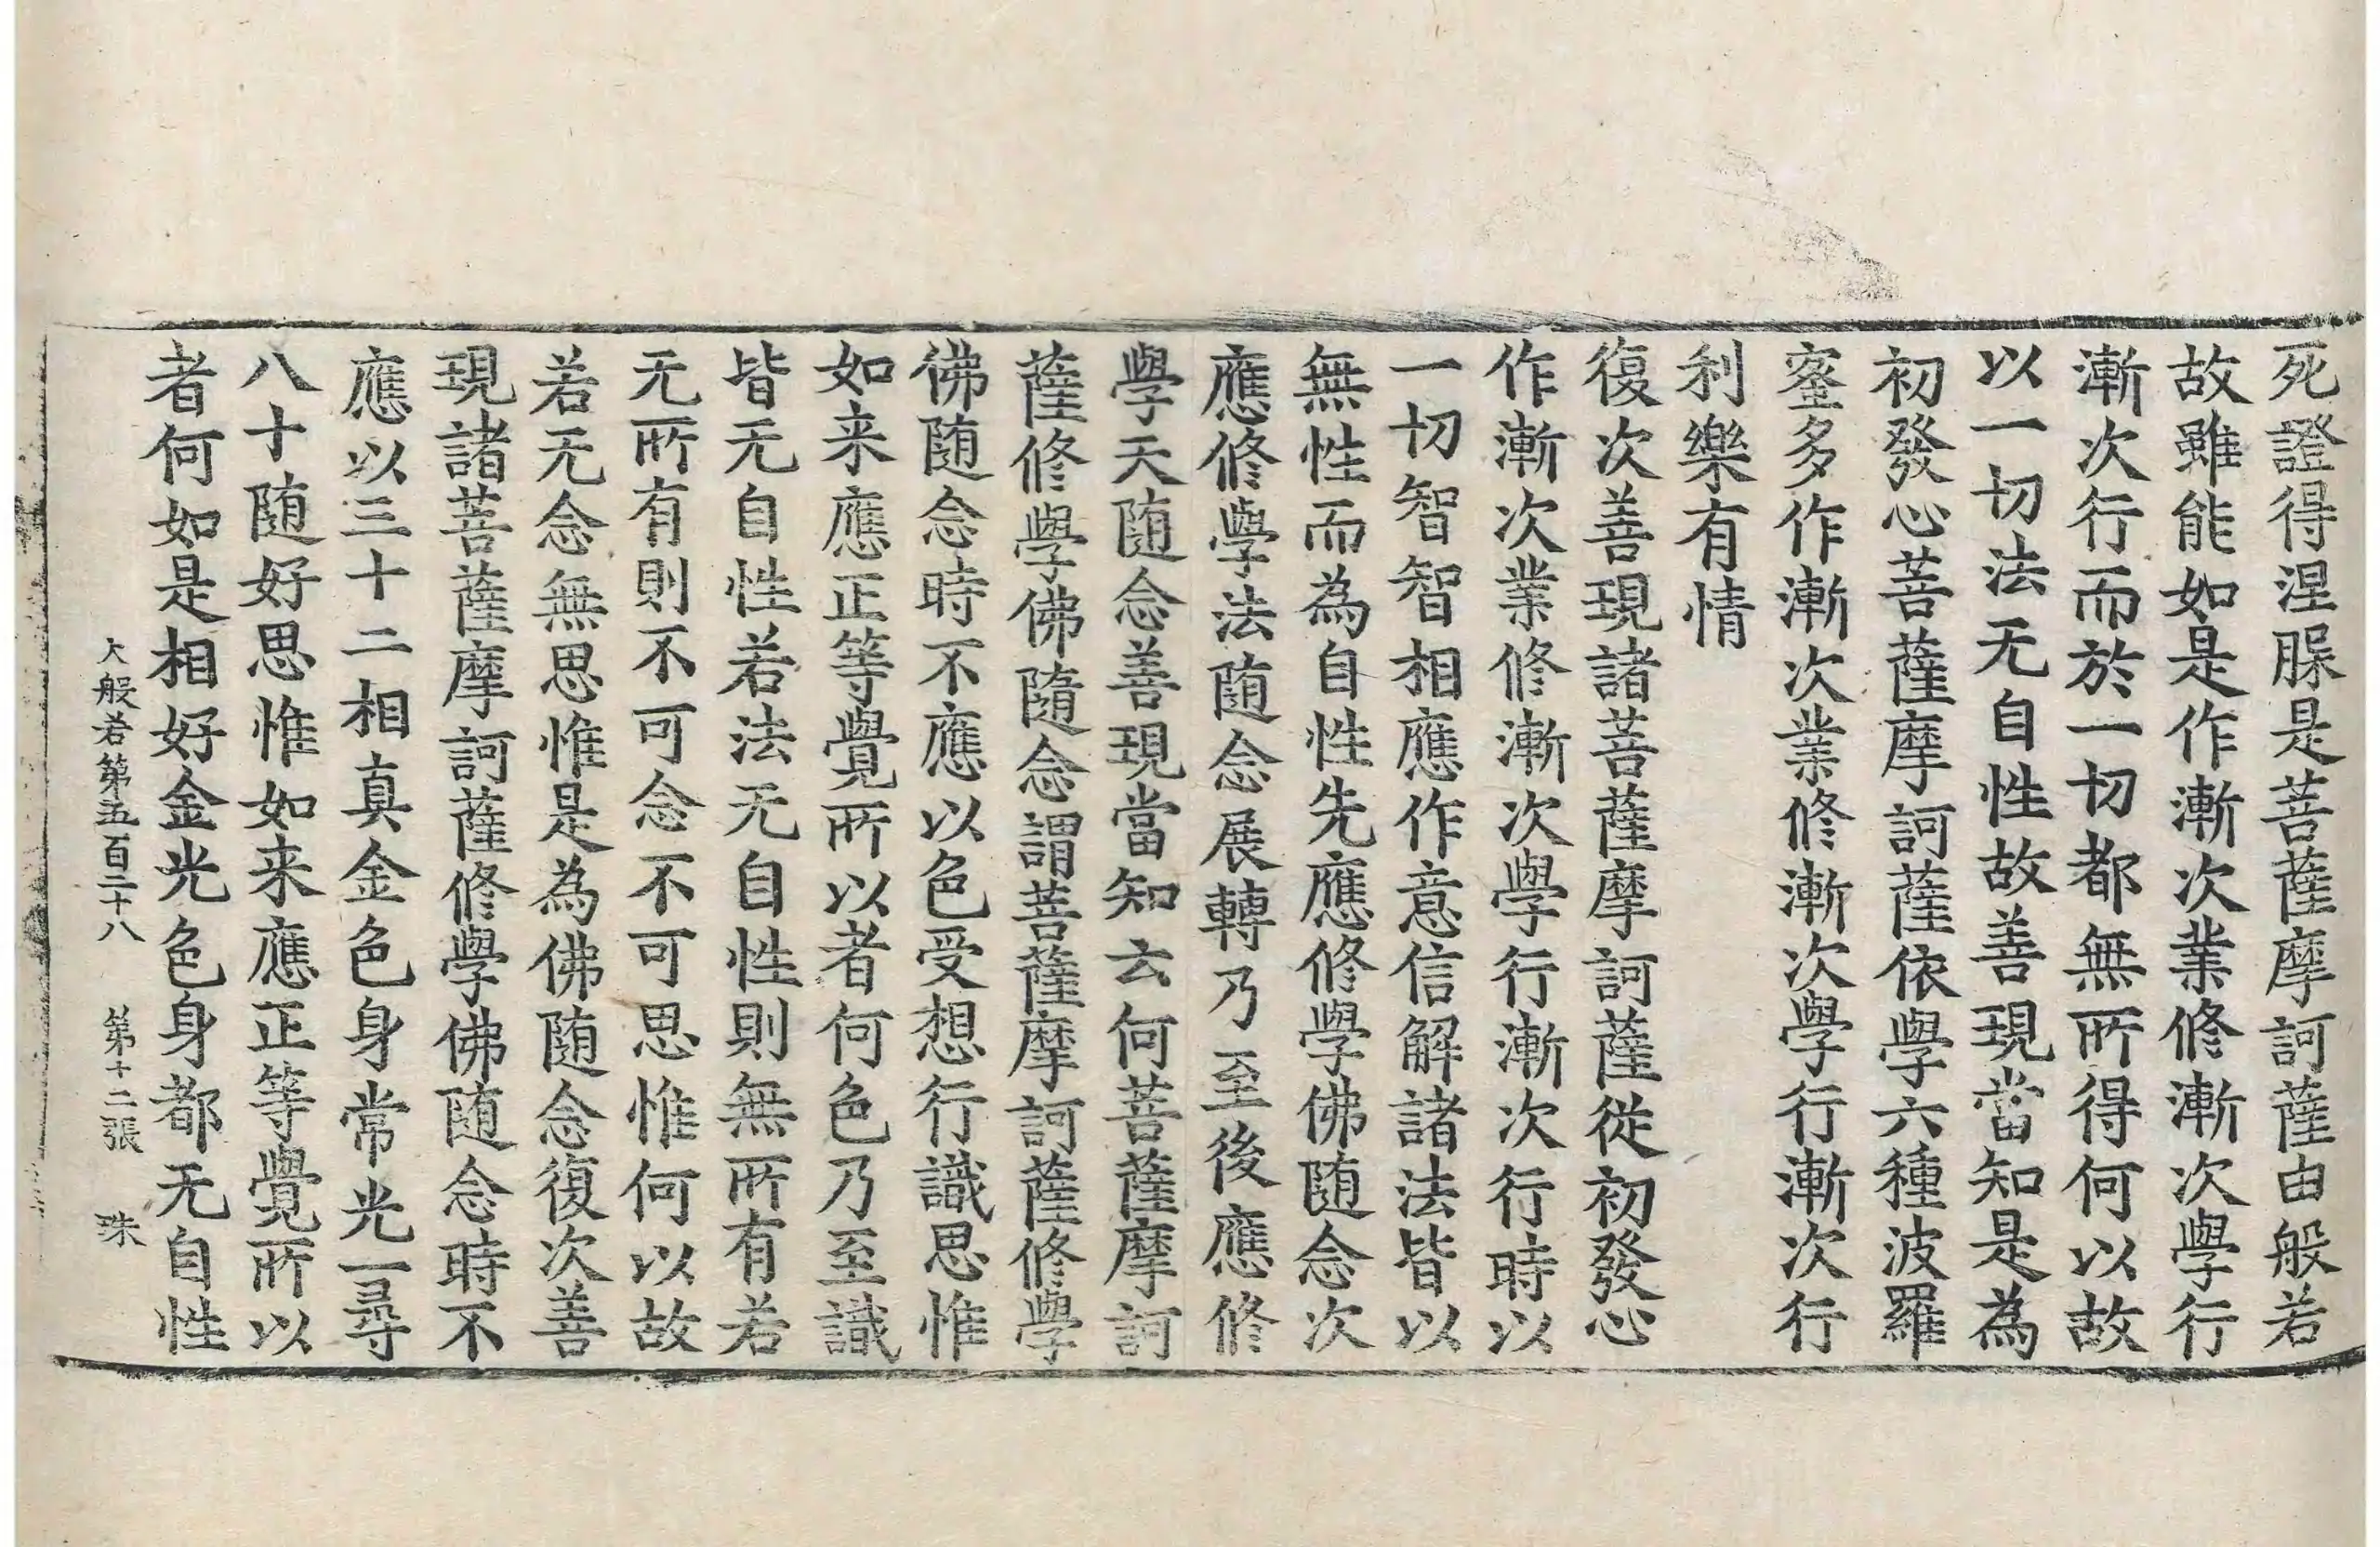 死證得涅脲是菩薩摩訶薩由般若
故雖能如是作漸次業修漸次學行
漸次行而於一切都無所得何以故
以一切法无自性故善現當知是為
初發心菩薩摩訶薩依學六種波羅
蜜多作漸次業修漸次學行漸次行
利樂有情
復次善現諸菩薩摩訶薩從初發心
作漸次業修漸次學行漸次行時以
一切智智相應作意信解諸法皆以
無性而為自性先應修學佛随念次
應修學法随念展轉乃至後應修
學天随念善現當知云何菩薩摩訶
薩修學佛隨念謂菩薩摩訶薩修學
佛随念時不應以色受想行識思惟
如来應正等覺所以者何色乃至識
皆无自性若法无自性則無所有若
无所有則不可念不可思惟何以故
若无念無思惟是為佛随念復次善
現諸菩薩摩訶薩修學佛随念時不
應以三十二相真金色身常光一尋
八十随好思惟如来應正等覺所以
者何如是相好金光色身都无自性
大般若第五百二十八 第十二張 珠